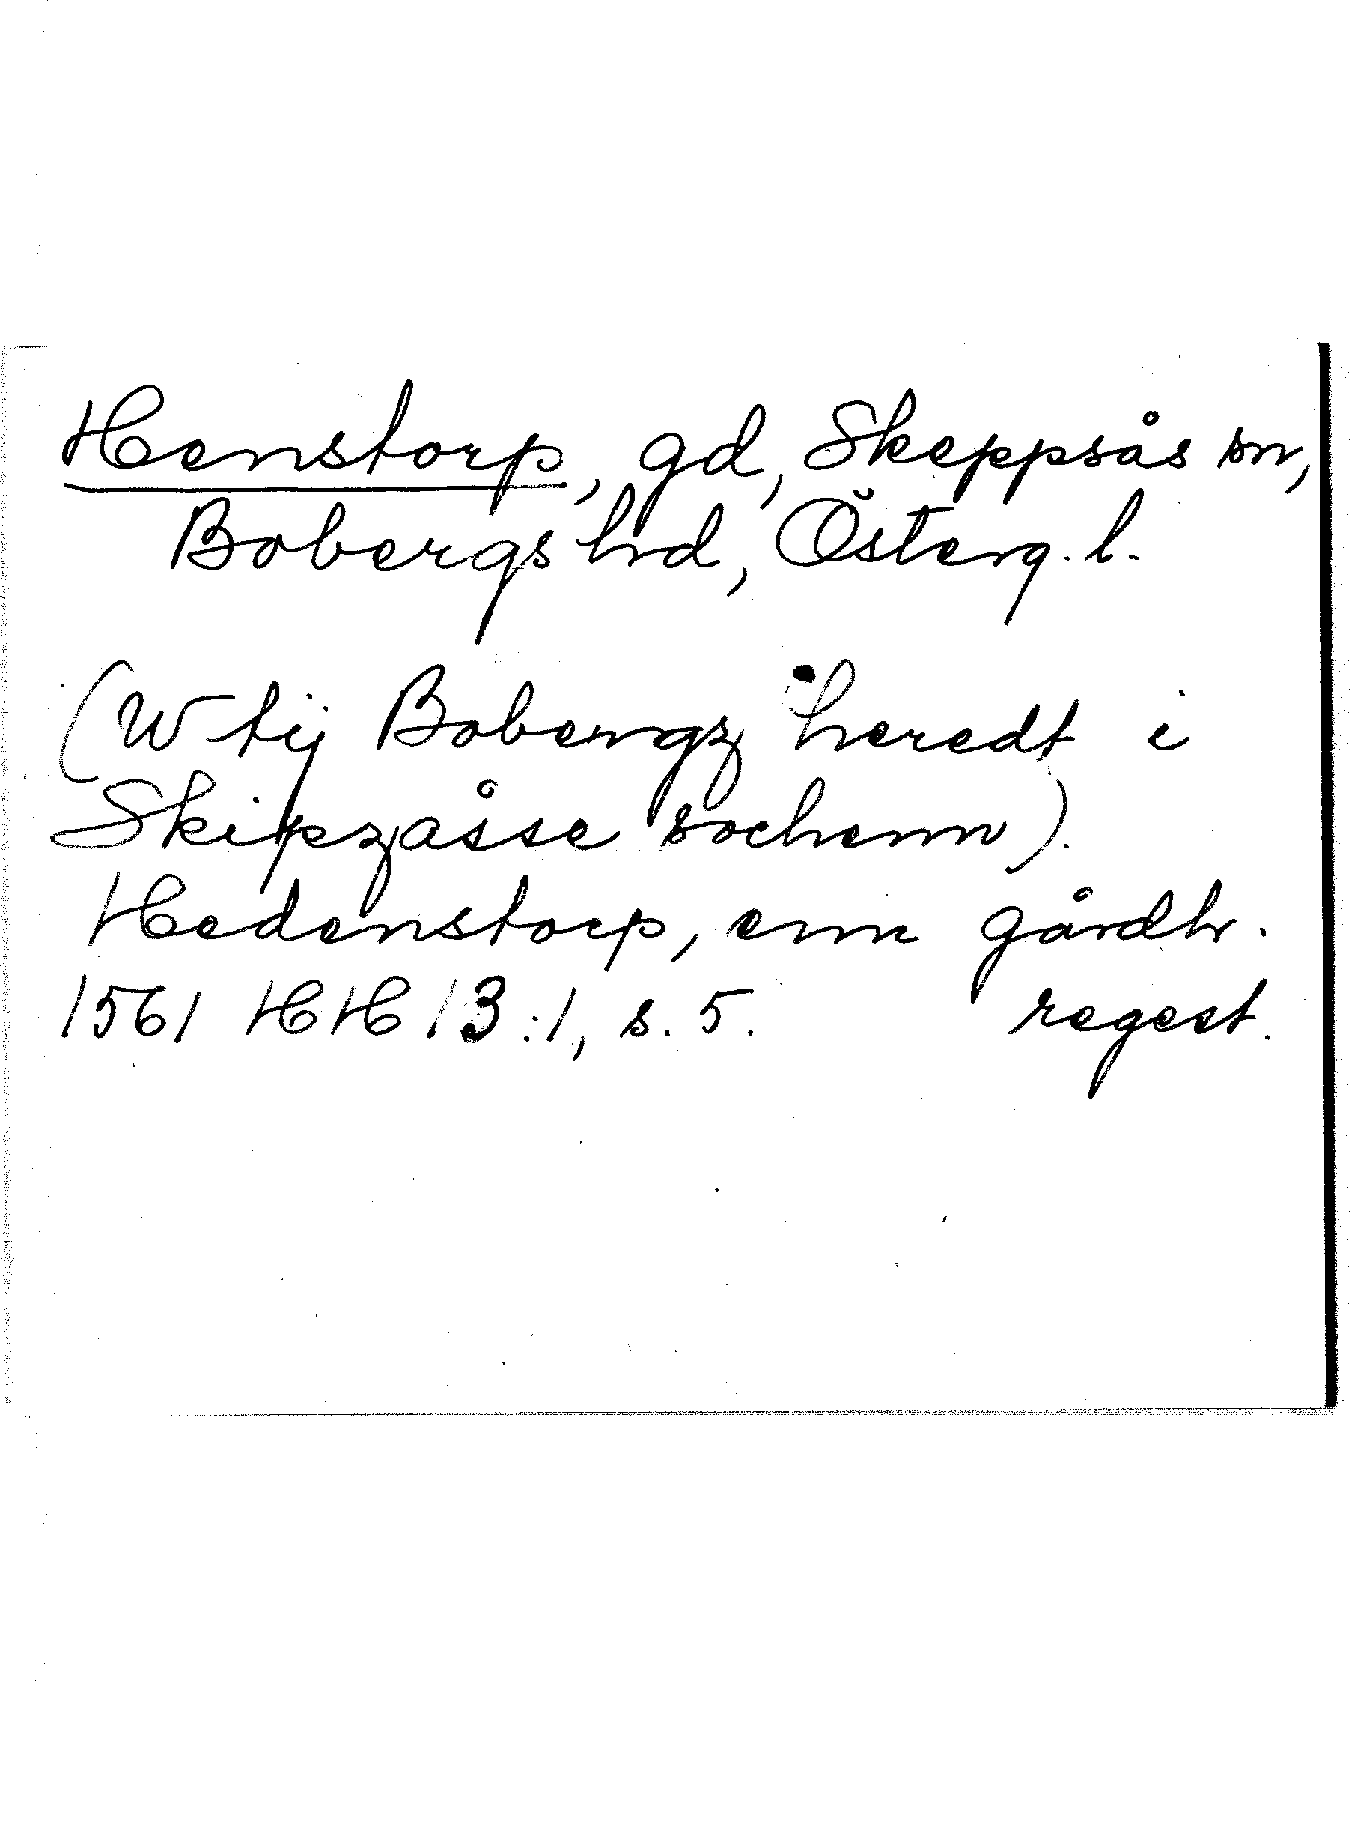 Henstorp, gd, Skeppsås sn,
Bobergs hrd, Österg. l.
(W tij Bobergz heredt i
Skipzåsse sochenn).
Hedenstorp, enn gårdh.
1561 HH 13:1, s. 5. regest.